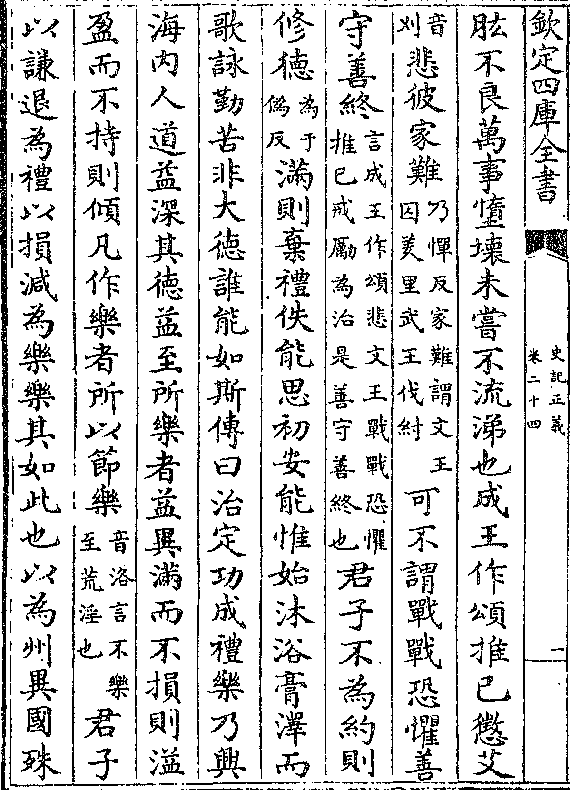 欽定四庫全書
史記正義
卷二十四
一
肱不良萬事墮壞未嘗不流涕也成王作頌推已懲艾
音
刈
悲彼家難
乃憚反家難謂文王
囚羑里武王伐紂
可不謂戰戰恐懼善
守善終
言成王作頌悲文王戰戰恐懼
推已戒勵為治是善守善終也
君子不為約則
修德
為于
偽反
滿則棄禮佚能思初安能惟始沐浴膏澤而
歌詠勤苦非大德誰能如斯傳曰治定功成禮樂乃興
海内人道益深其德益至所樂者益異滿而不損則溢
盈而不持則傾凡作樂者所以節樂
音洛言不樂
至荒淫也
君子
以謙退為禮以損減為樂樂其如此也以為州異國殊